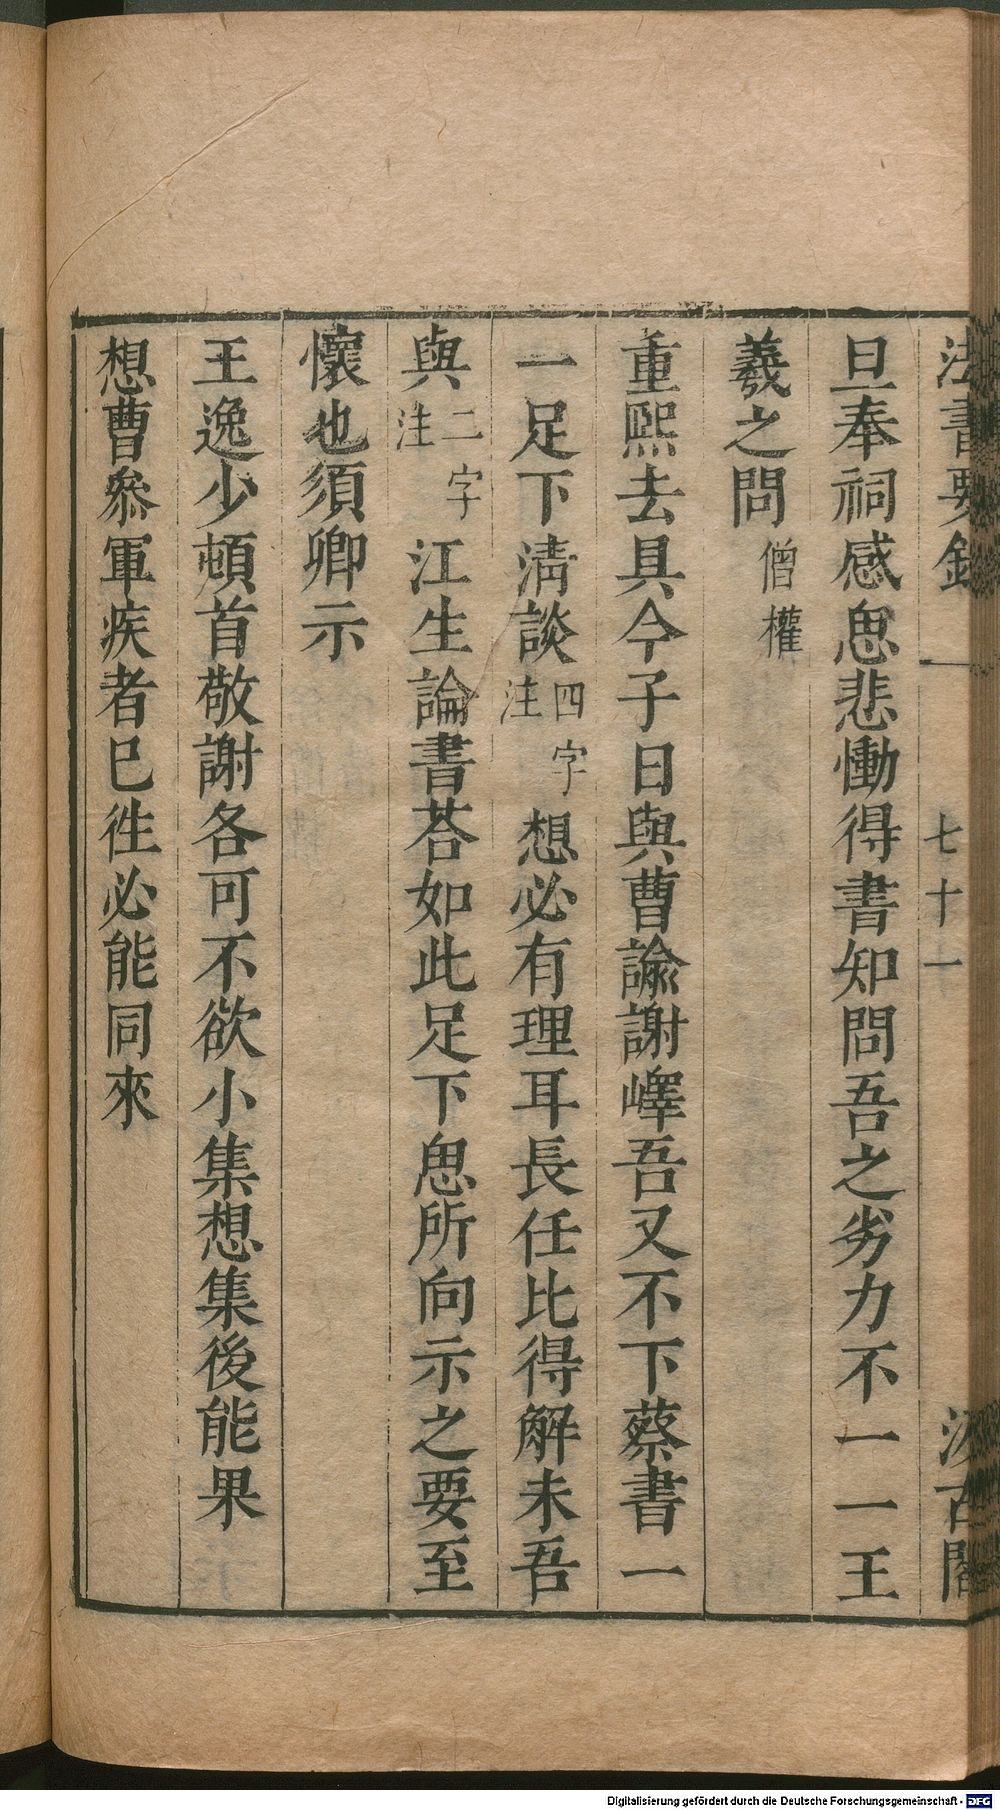 法書要錄 一 七十一 汲古閣
旦奉祠感思悲慟得書知問吾之劣力不一一王
羲之問僧權
重熙去具今子日與曹諭謝嶧吾又不下蔡書一
一足下清談四字注想必有理耳長任比得解未吾
與二字注江生論書荅如此足下思所向示之要至
懷也須卿示
王逸少頓首敬謝各可不欲小集想集後能果
想曹叅軍疾者巳徃必能同來
Digitalisierung gefördert durch die Deutsche Forschungsgemeinschaft - DFG